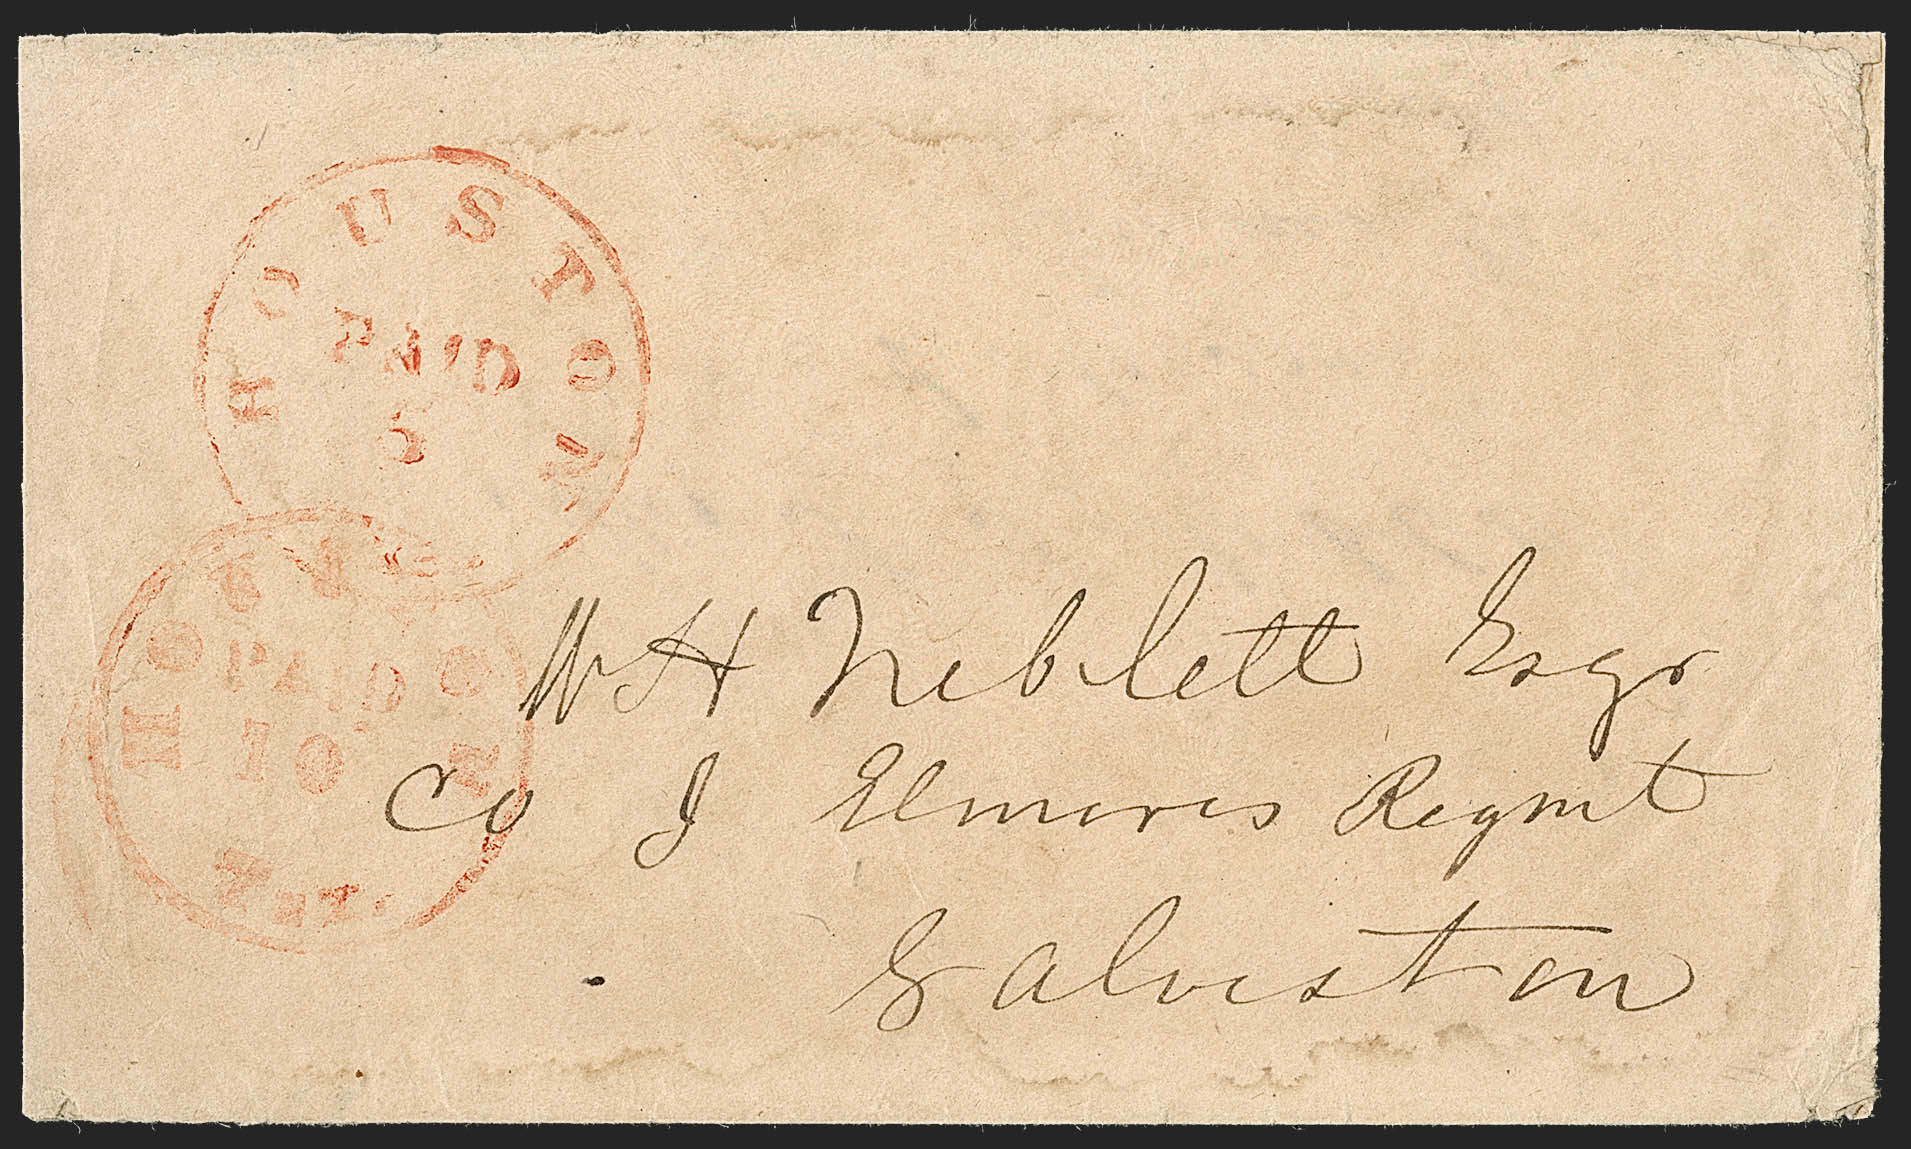 HOUSTON
PAID
5
HOUSTON
PAID
10
TEX.
W H Neblett Esqr
Co I Elmores Regmt
Galveston